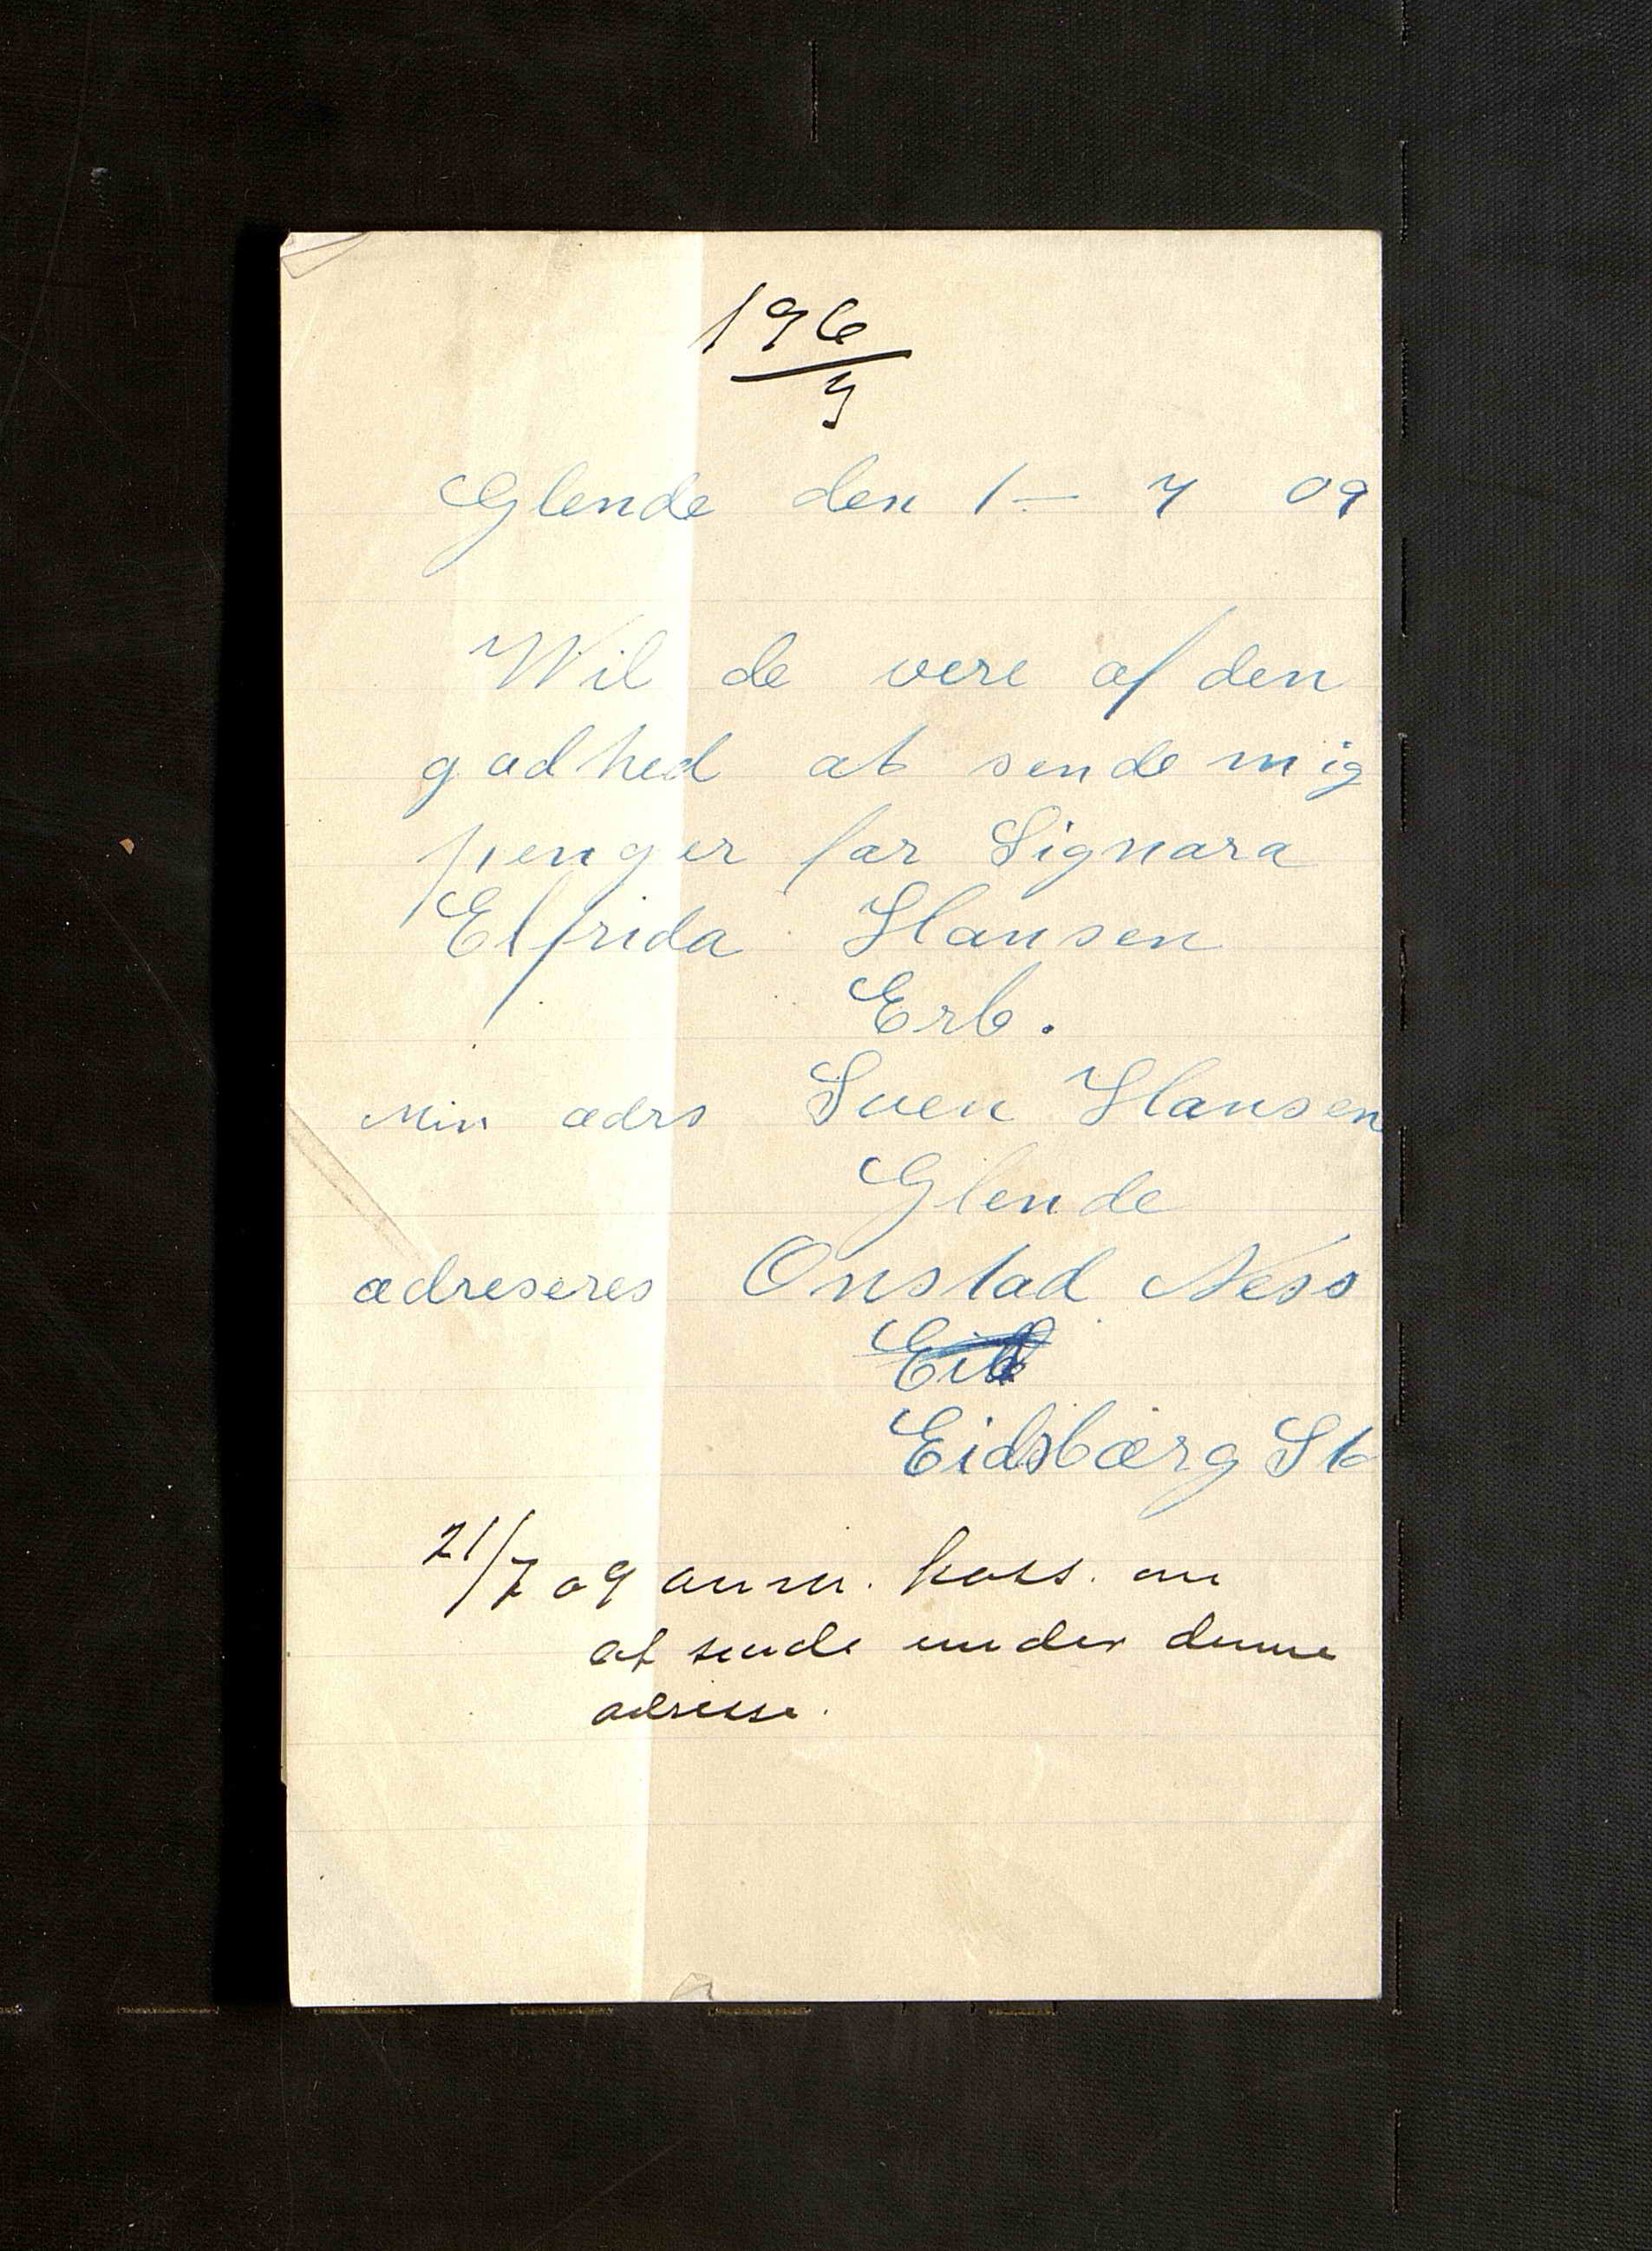 196
9
Glende den 1 - 7 09
Wil de vere af den
godhed at sende mig
penger for Signora
Elfrida Hansen
Erb.
Min adrs Sven Hansen
Glende
adreseres Onstad Ness
Eidsbærg St
21/7 09 anm. kass. om
at sende under denne
adresse.